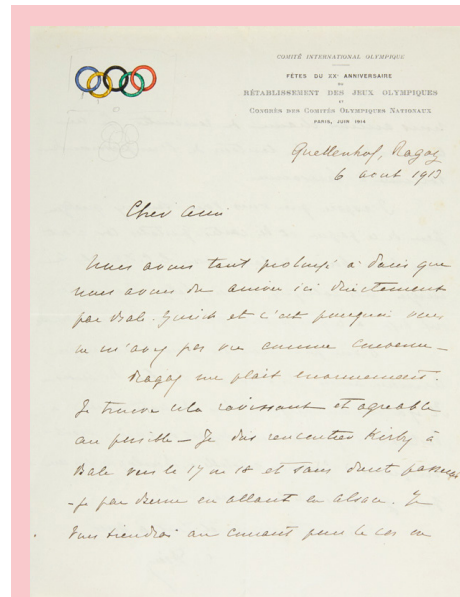 COMITÉ INTERNATIONAL OLYMPIQUE
FÊTES DU XXᵉ ANNIVERSAIRE
DU
RÉTABLISSEMENT DES JEUX OLYMPIQUES
ET
CONGRÈS DES COMITÉS OLYMPIQUES NATIONAUX
PARIS, JUIN 1914
Quellenhof, Ragaz
6 aout 1913
Cher ami
Nous avons tant prolongé à Paris que
nous avons du arriver ici directement
par Bale-Zurich et c'est pourquoi vous
ne m'avez pas vu comme convenu -
Ragaz me plait enormement.
Je trouve cela ravissant et agreable
au possible - Je dois rencontrer Kirby à
Bale vers le 17 ou 18 et sans doute
-je par Berne en allant en Alsace. Je
vous tiendrai au courant pour le cas ou